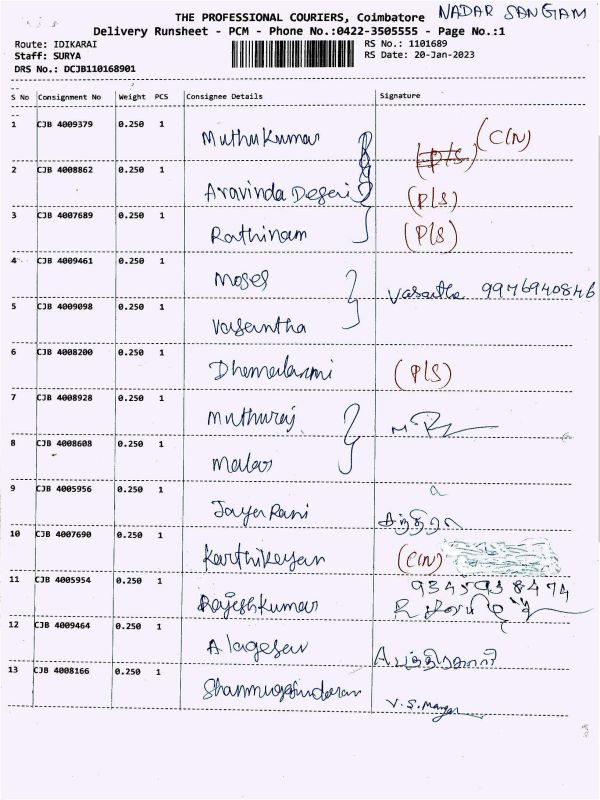 THE PROFESSIONAL COURIERS, Coimbatore NADAR SANGAM
Delivery Runsheet - PCM - Phone No.:0422-3505555 - Page No.:1
Route: IDIKARAI RS No.: 1101689
Staff: SURYA RS Date: 20-Jan-2023
DRS No.: DCJB110168901
S No Consignment No Weight PCS Consignee Details Signature
1 CJB 4009379 0.250 1 Muthukumar (P/S) (C/N)
2 CJB 4008862 0.250 1 Aravinda Desari (P/S)
3 CJB 4007689 0.250 1 Rathinam (P/S)
4 CJB 4009461 0.250 1 Moses Vasantha 9976940846
5 CJB 4009098 0.250 1 Vasantha
6 CJB 4008200 0.250 1 Dhanalaxmi (P/S)
7 CJB 4008928 0.250 1 Muthuraj
8 CJB 4008608 0.250 1 Malar
9 CJB 4005956 0.250 1 Jaya Rani
10 CJB 4007690 0.250 1 Karthikeyan (C/N)
9345938474
11 CJB 4005954 0.250 1 Rajeshkumar
12 CJB 4009464 0.250 1 Alagesan
13 CJB 4008166 0.250 1 Shanmugasundaram V.S.